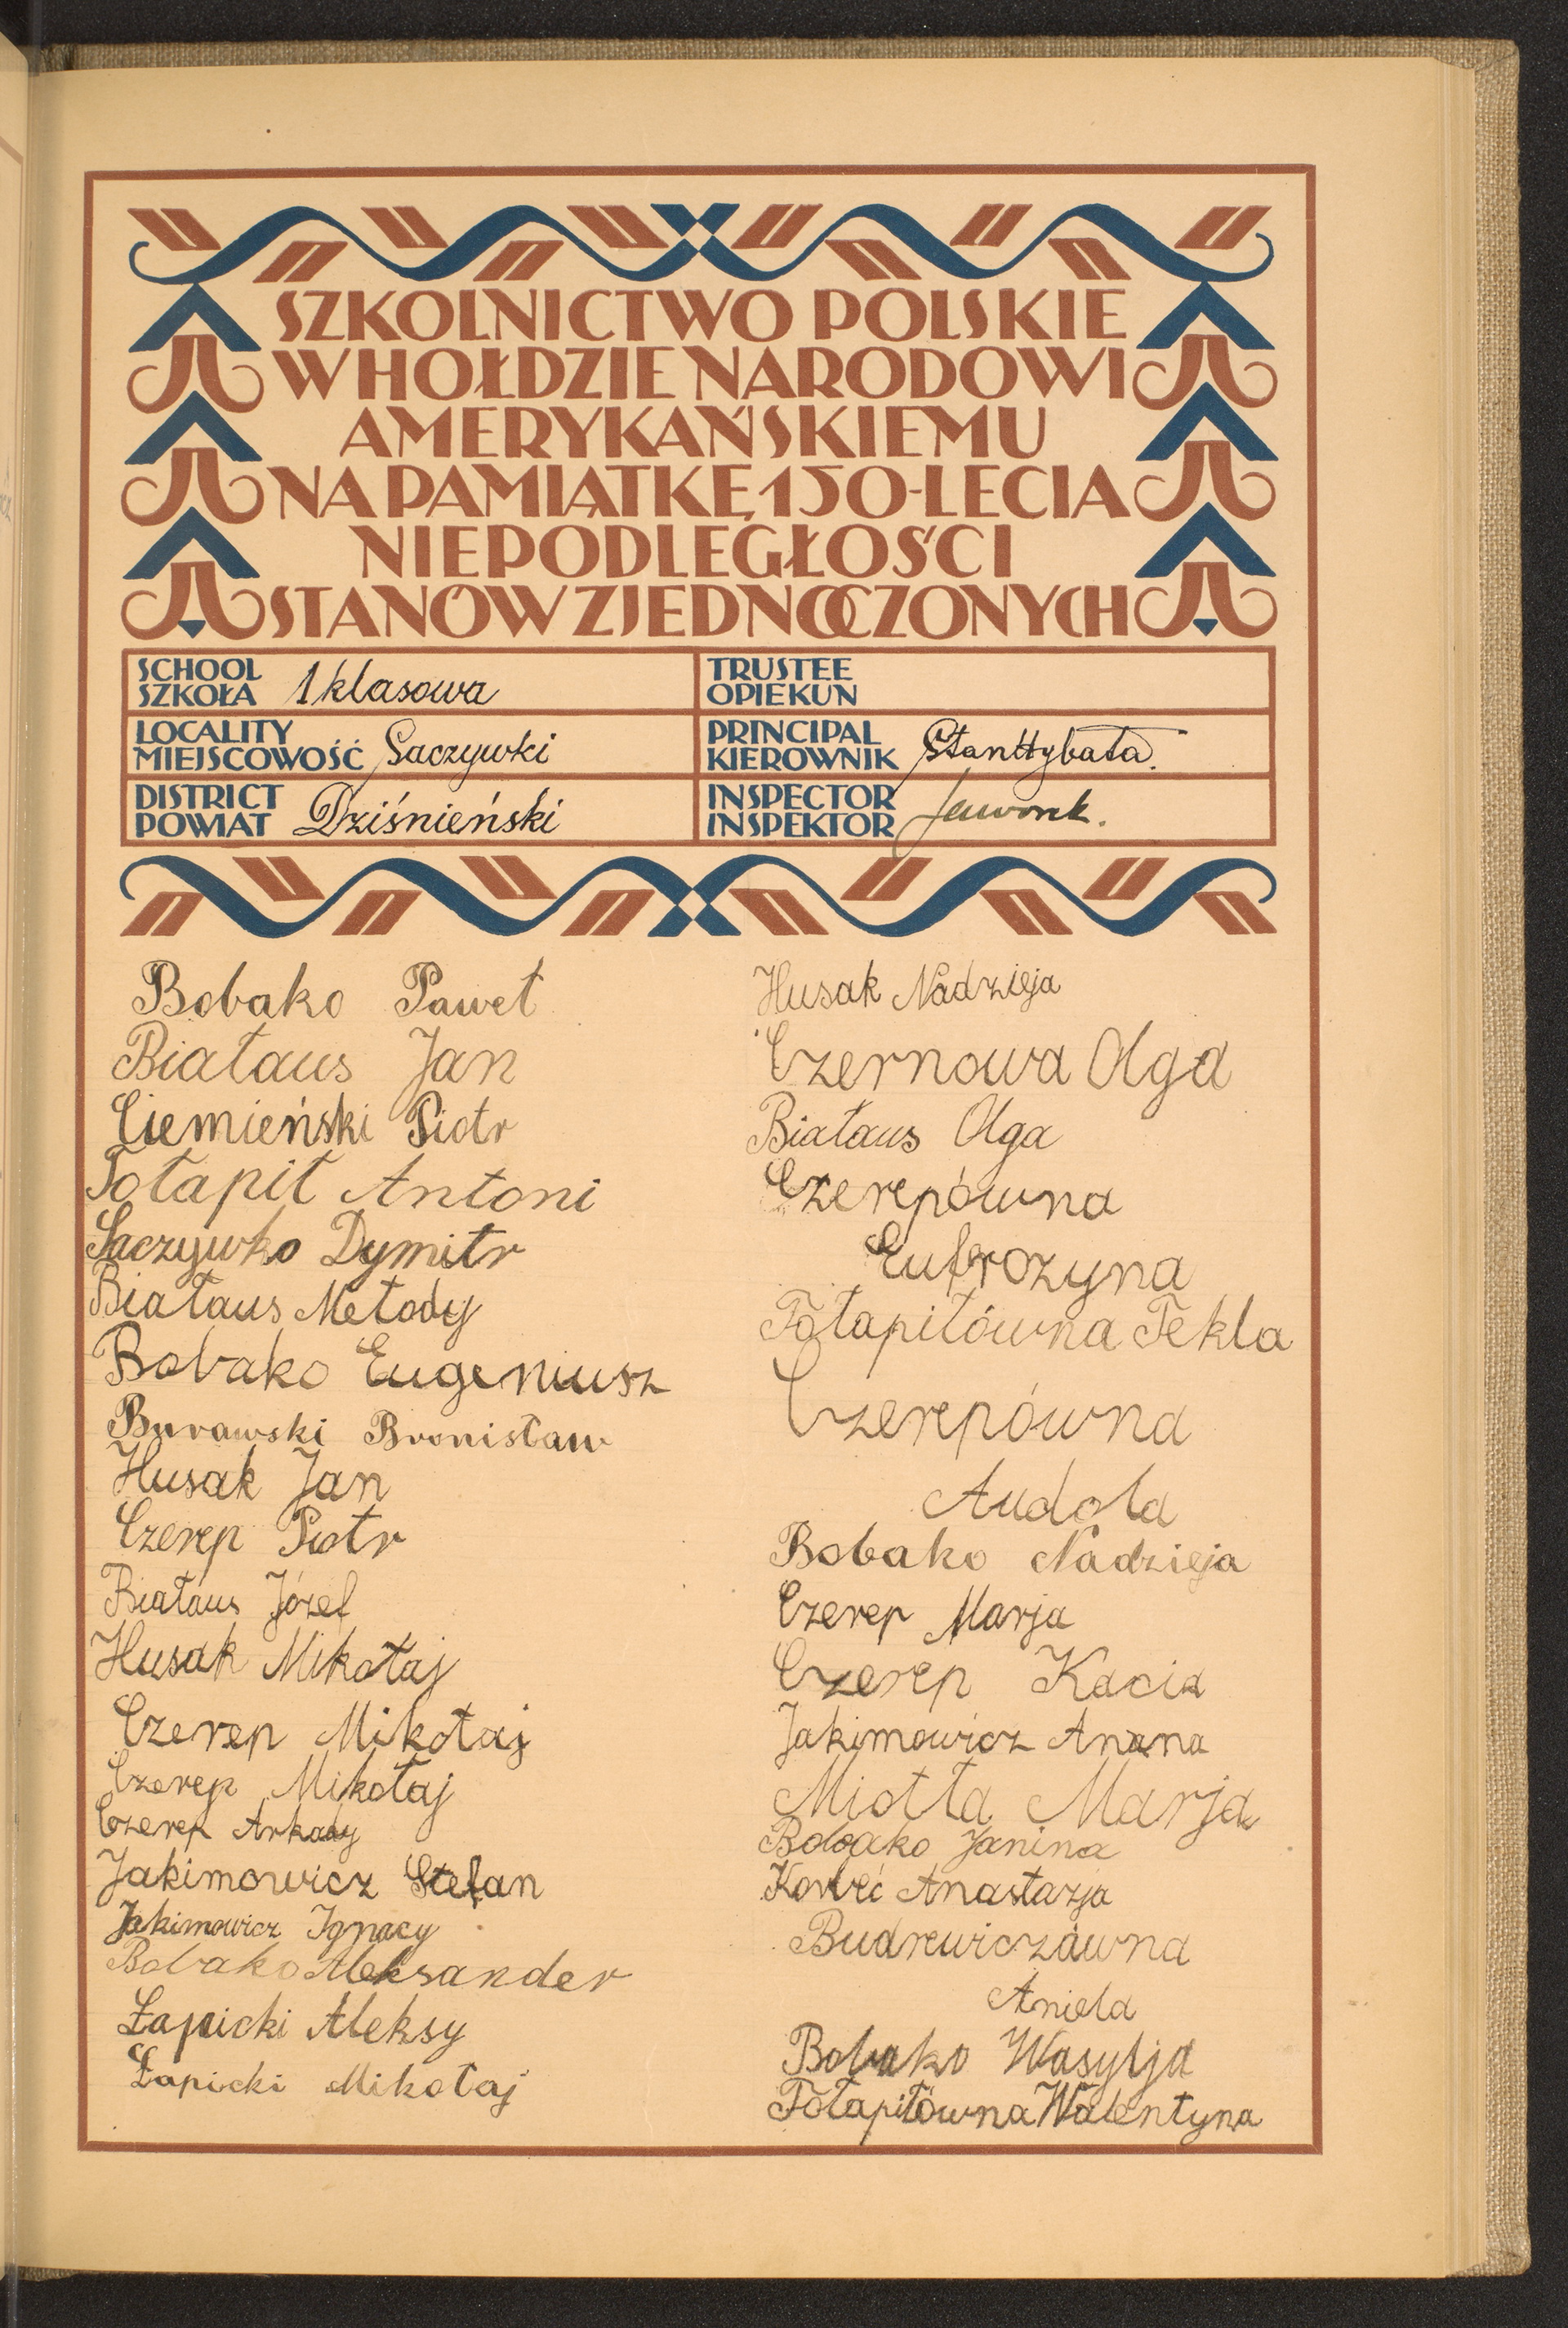 SZKOLNICTWO POLSKIE
W HOŁDZIE NARODOWI
AMERYKAŃSKIEMU
NA PAMIĄTKĘ 150-LECIA
NIEPODLEGŁOŚCI
STANÓW ZJEDNOCZONYCH
SCHOOL
SZKOŁA 1 klasowa
TRUSTEE
OPIEKUN
LOCALITY
MIEJSCOWOŚĆ Saczywki
PRINCIPAL
KIEROWNIK
DISTRICT
POWIAT Dziśnieński
INSPECTOR
INSPEKTOR Jaworek.
Bobako Paweł
Białaus Jan
Ciemieński Piotr
Tołapił Antoni
Saczywko Dymitr
Białaus Metody
Bobako Eugeniusz
Burawski Bronisław
Husak Jan
Czerep Piotr
Białaus Józef
Husak Mikołaj
Czerep Mikołaj
Czerep Mikołaj
Czerep Arkady
Jakimowicz Stefan
Jakimowicz Ignacy
Bobako Aleksander
Łapicki Aleksy
Łapicki Mikołaj
Husak Nadzieja
Czernowa Olga
Białaus Olga
Czerepówna
Eufrozyna
Tołapiłówna Tekla
Czerepówna
Audola
Bobako Nadzieja
Czerep Marja
Czerep Kacia
Jakimowicz Anana
Miotła Marja
Bobako Janina
Anastazja
Budrewiczówna
Aniela
Bobako Wasylja
Tołapiłówna Walentyna